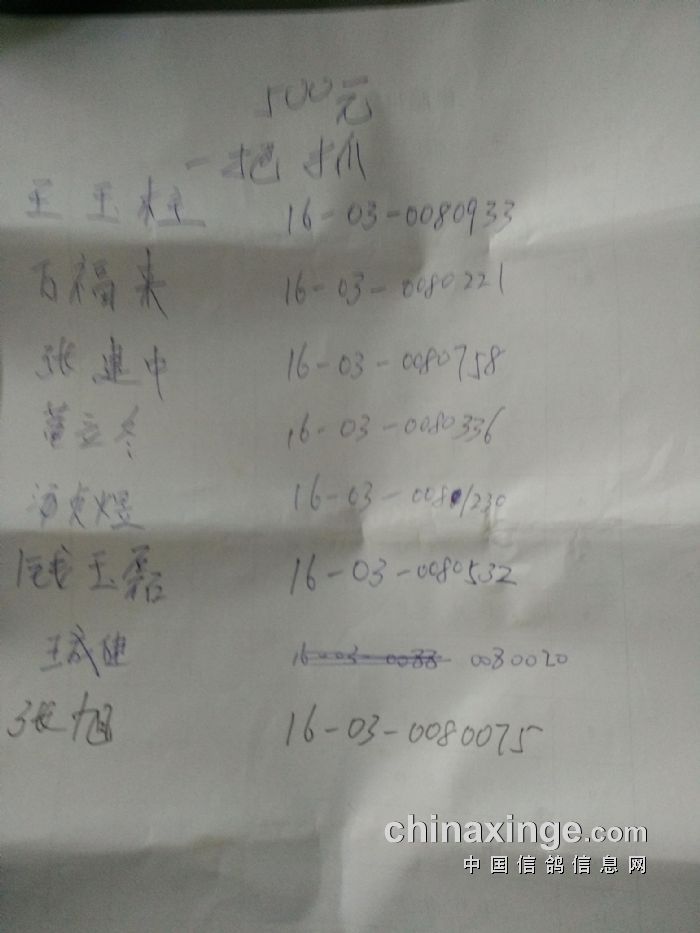 500元
一把抓
王玉柱 16-03-0080933
百福来 16-03-0080221
张建中 16-03-0080758
董立冬 16-03-0080336
16-03-0081230
钱玉磊 16-03-0080532
王成健 16-03-0088 0080020
张旭 16-03-0080075
chinaxinge.com
中国信鸽信息网